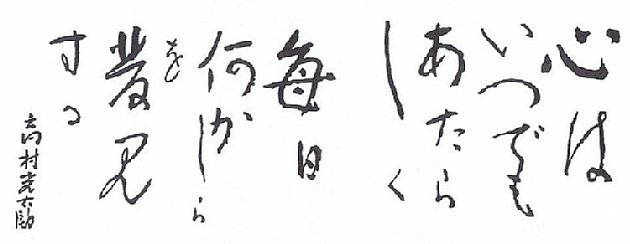 心は
いつでも
あたら
しく
毎日
何かしら
を
發見
する
高村光太郎